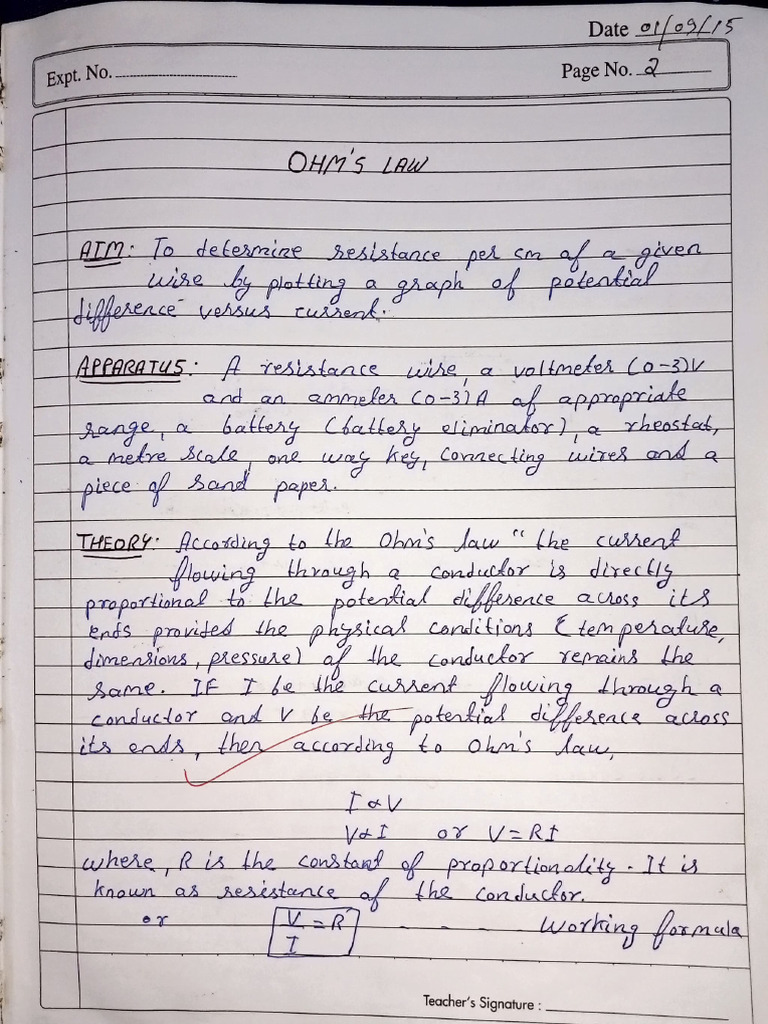 Date 01/09/15
Expt. No.
Page No. 2
OHM'S LAW
AIM: To determine resistance per cm of a given
wire by plotting a graph of potential
difference versus current.
APPARATUS: A resistance wire, a voltmeter (0-3)V
and an ammeter (0-3)A of appropriate
range, a battery (battery eliminator), a rheostat,
a metre scale, one way key, connecting wires and a
piece of sand paper.
THEORY: According to the Ohm's law "the current
flowing through a conductor is directly
proportional to the potential difference across its
ends provided the physical conditions (temperature,
dimensions, pressure) of the conductor remains the
same. IF I be the current flowing through a
conductor and V be the potential difference across
its ends, then according to Ohm's law,
I ∝ V
V ∝ I or V = RI
where, R is the constant of proportionality. It is
known as resistance of the conductor.
or V/I = R - - - - Working formula
Teacher's Signature :